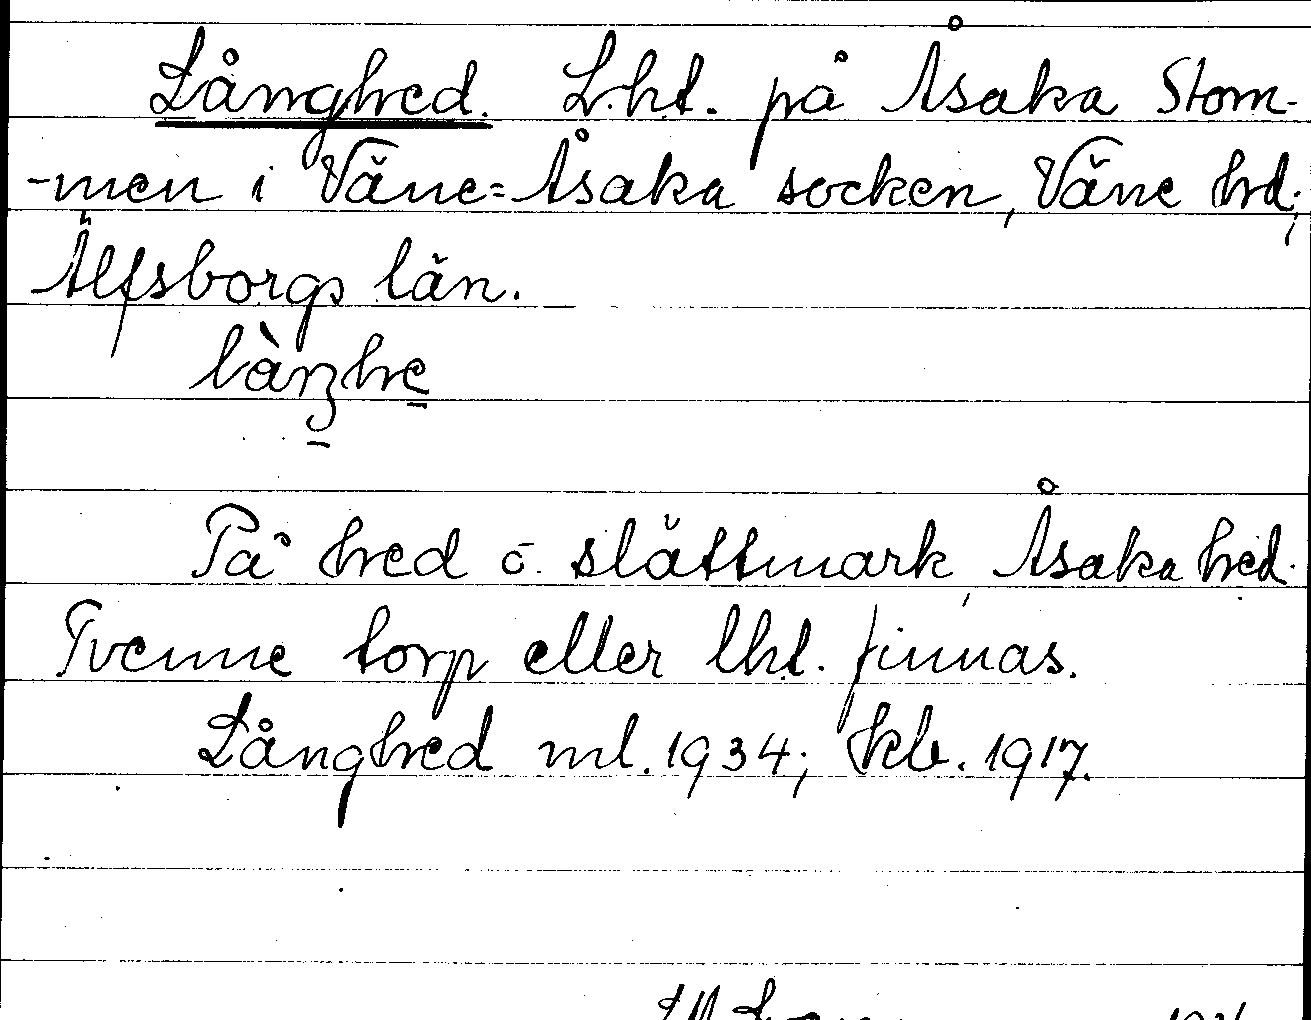 Långhed. Lht. på Åsaka Stom-
-men i Väne-Åsaka socken, Väne hd;
Älfsborgs län.
På hed o. slättmark, Åsaka hed.
Tvenne torp eller lht. finnas.
Långhed ml. 1934; Kb. 1917.